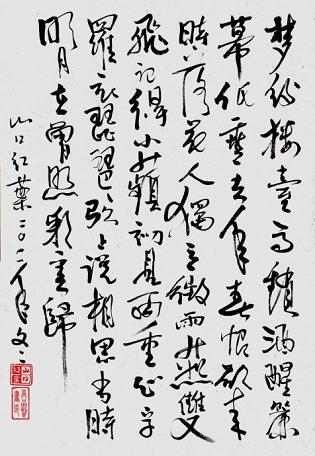 梦後樓臺高鎖酒醒簾
幕低垂去年春恨却来
時落花人獨立微雨燕雙
飛記得小蘋初見兩重心字
羅衣琵琶弦上説相思当時
明月在曾照彩雲歸
山口红葉二〇一